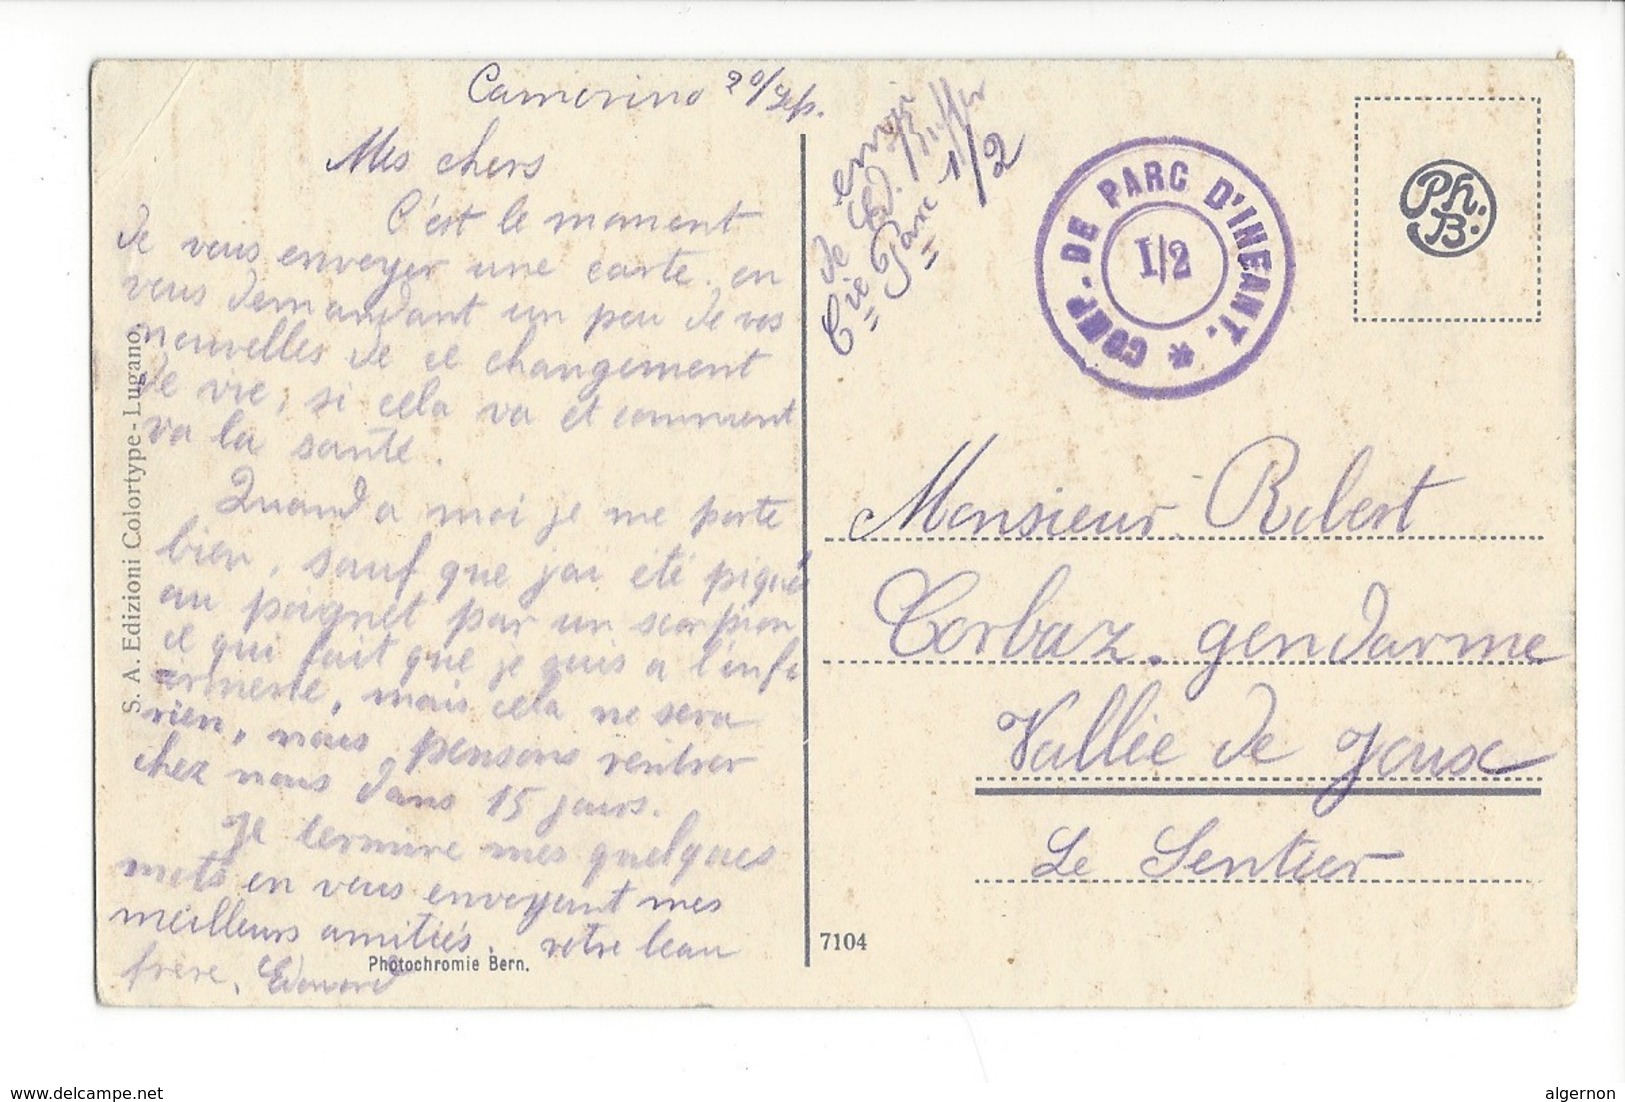 Camorino 20/Sep.
Mes chers
C'est le moment
de vous envoyer une carte. en
vous demandant un peu de vos
nouvelles de ce changement
de vie, si cela va et comment
va la santé.
Quand a moi je me porte
bien, sauf que j'ai été piqué
au poignet par un scorpion
ce qui fait que je suis a l'infi
irmerie, mais cela ne sera
rien, nous pensons rentrer
chez nous dans 15 jours.
Je termine mes quelques
mots en vous envoyant mes
meilleurs amitiés. votre beau
frère, Edouard
S. A. Edizioni Colortype - Lugano.
Photochromie Bern.
7104
envoi
de Ed.
Cie Parc 1/2
COMP. DE PARC D'INFANT. *
I/2
Ph.
B.
Monsieur Robert
Corbaz. gendarme
Vallée de Joux
Le Sentier
www.delcampe.net
algernon